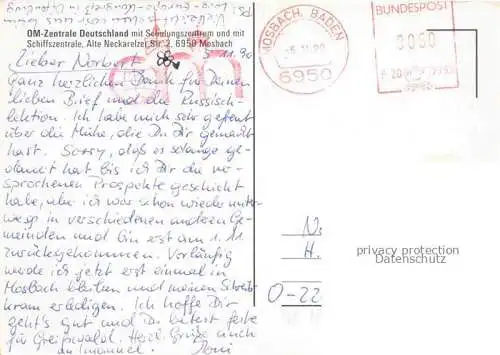 OM-Zentrale Deutschland mit Sendungszentrum und mit
Schiffszentrale, Alte Neckarelzer Str. 2, 6950 Mosbach
Lieber Norbert! 5.11.90
Ganz herzlichen Dank für Deinen
lieben Brief und die Russisch-
lektion. Ich habe mich sehr gefreut
über die Mühe, die Du Dir gemacht
hast. Sorry, daß es solange ge-
dauert hat bis ich Dir die ver-
sprochenen Prospekte geschickt
habe, aber ich war schon wieder unter-
wegs in verschiedenen anderen Ge-
meinden und bin erst am 1.11
zurückgekommen. Vorläufig
werde ich jetzt erst einmal in
Mosbach bleiben und meinen Schreib-
kram erledigen. Ich hoffe Dir
geht's gut und Du betest feste
für Greifswald. Herzl. Grüße auch
an Imanuel.
om
MOSBACH, BADEN
-5.11.90
6950
DEUTSCHE
BUNDESPOST
0060
N.
H.
O-22
privacy protection
Datenschutz